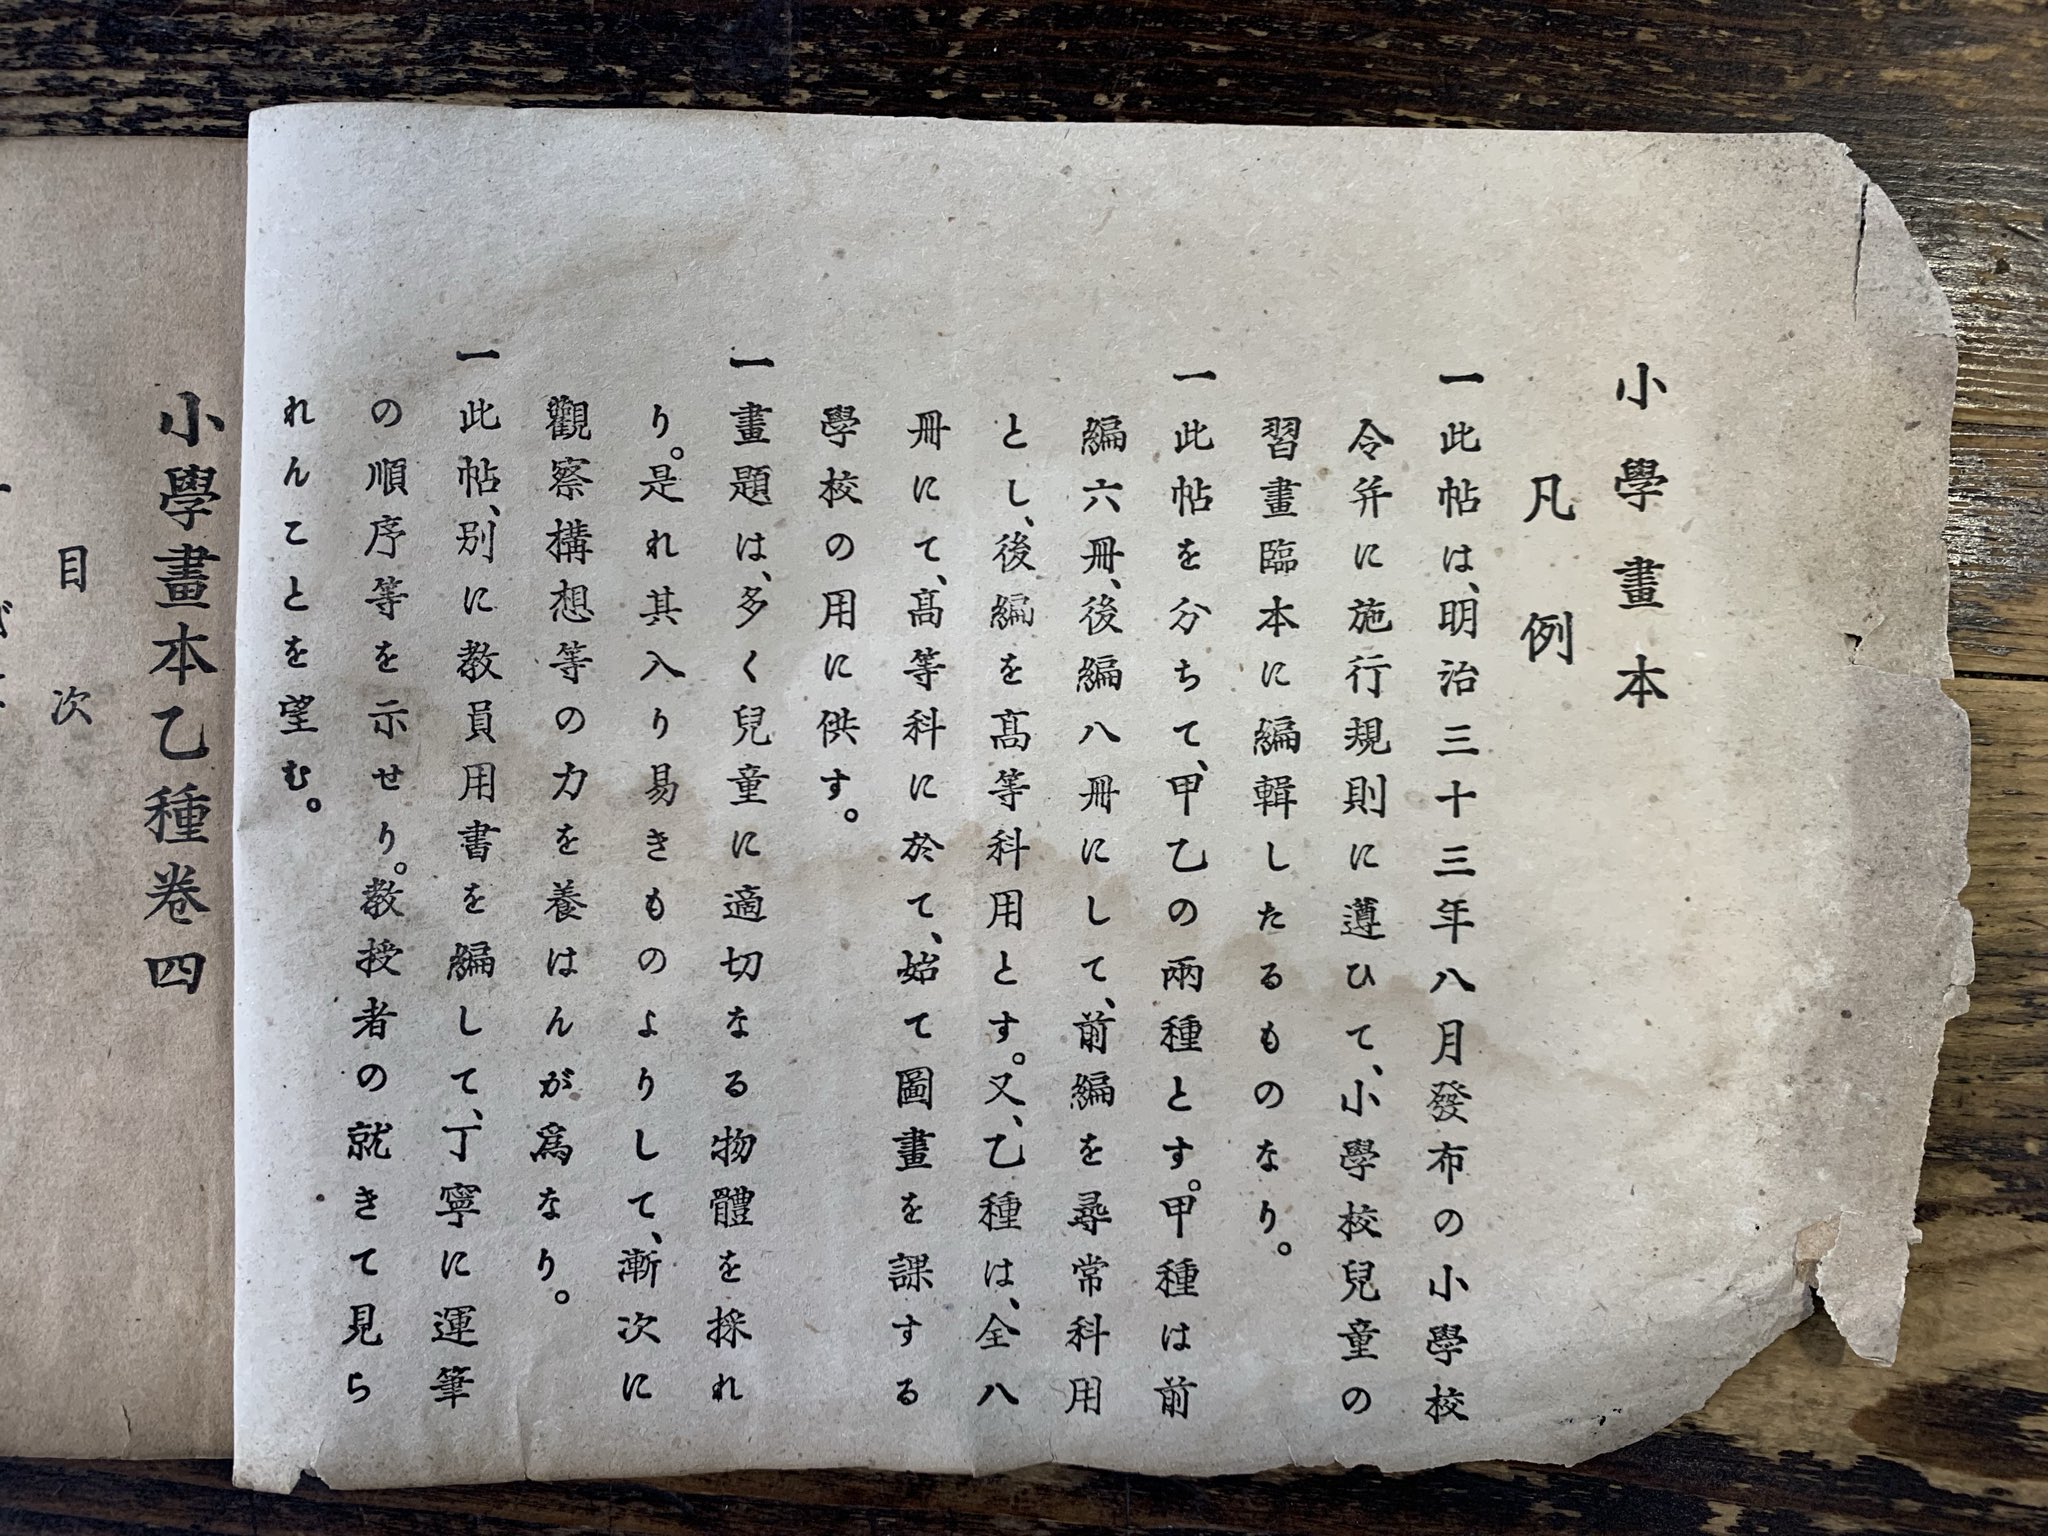 小學畫本
凡例
一此帖は、明治三十三年八月發布の小學校
令并に施行規則に遵ひて、小學校兒童の
習畫臨本に編輯したるものなり。
一此帖を分ちて、甲乙の兩種とす。甲種は前
編六冊、後編八冊にして、前編を尋常科用
とし、後編を高等科用とす。又、乙種は、全八
冊にて、高等科に於て、始て圖畫を課する
學校の用に供す。
一畫題は、多く兒童に適切なる物體を採れ
り。是れ其入り易きものよりして、漸次に
觀察構想等の力を養はんが爲なり。
一此帖、別に教員用書を編して、丁寧に運筆
の順序等を示せり。教授者の就きて見ら
れんことを望む。
小學畫本乙種卷四
目次